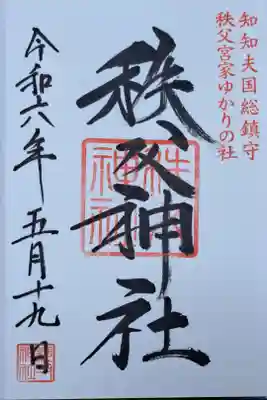 知知夫国総鎮守
秩父宮家ゆかりの社
秩父神社
令和六年 五月十九日